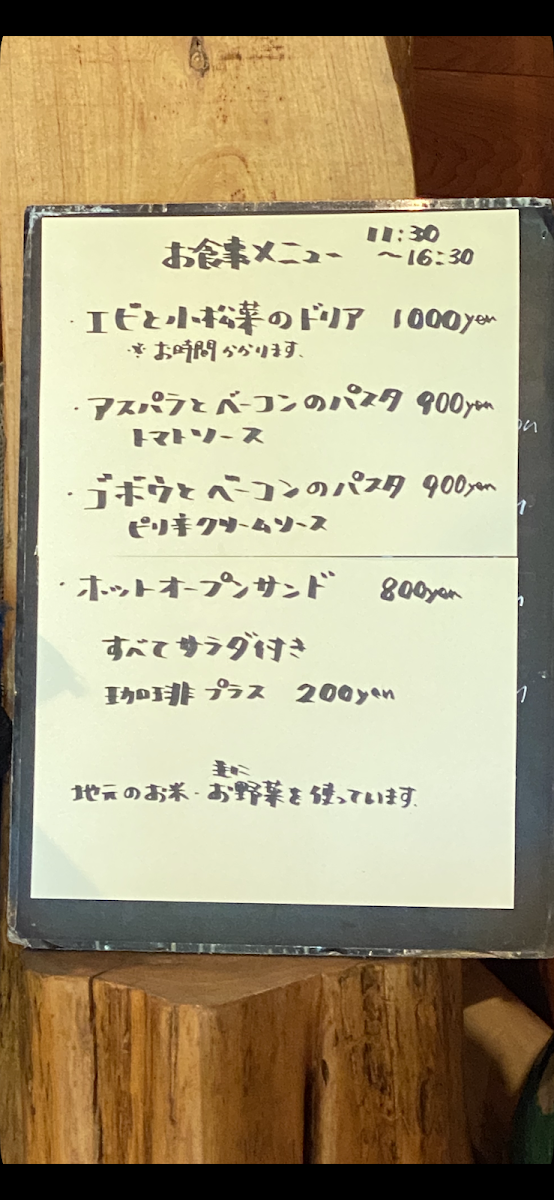 お食事メニュー 11:30
〜16:30
・エビと小松菜のドリア 1000yen
※お時間かかります.
・アスパラとベーコンのパスタ 900yen
トマトソース
・ゴボウとベーコンのパスタ 900yen
ピリ辛クリームソース
・ホットオープンサンド 800yen
すべてサラダ付き
珈琲プラス 200yen
主に
地元のお米・お野菜を使っています.